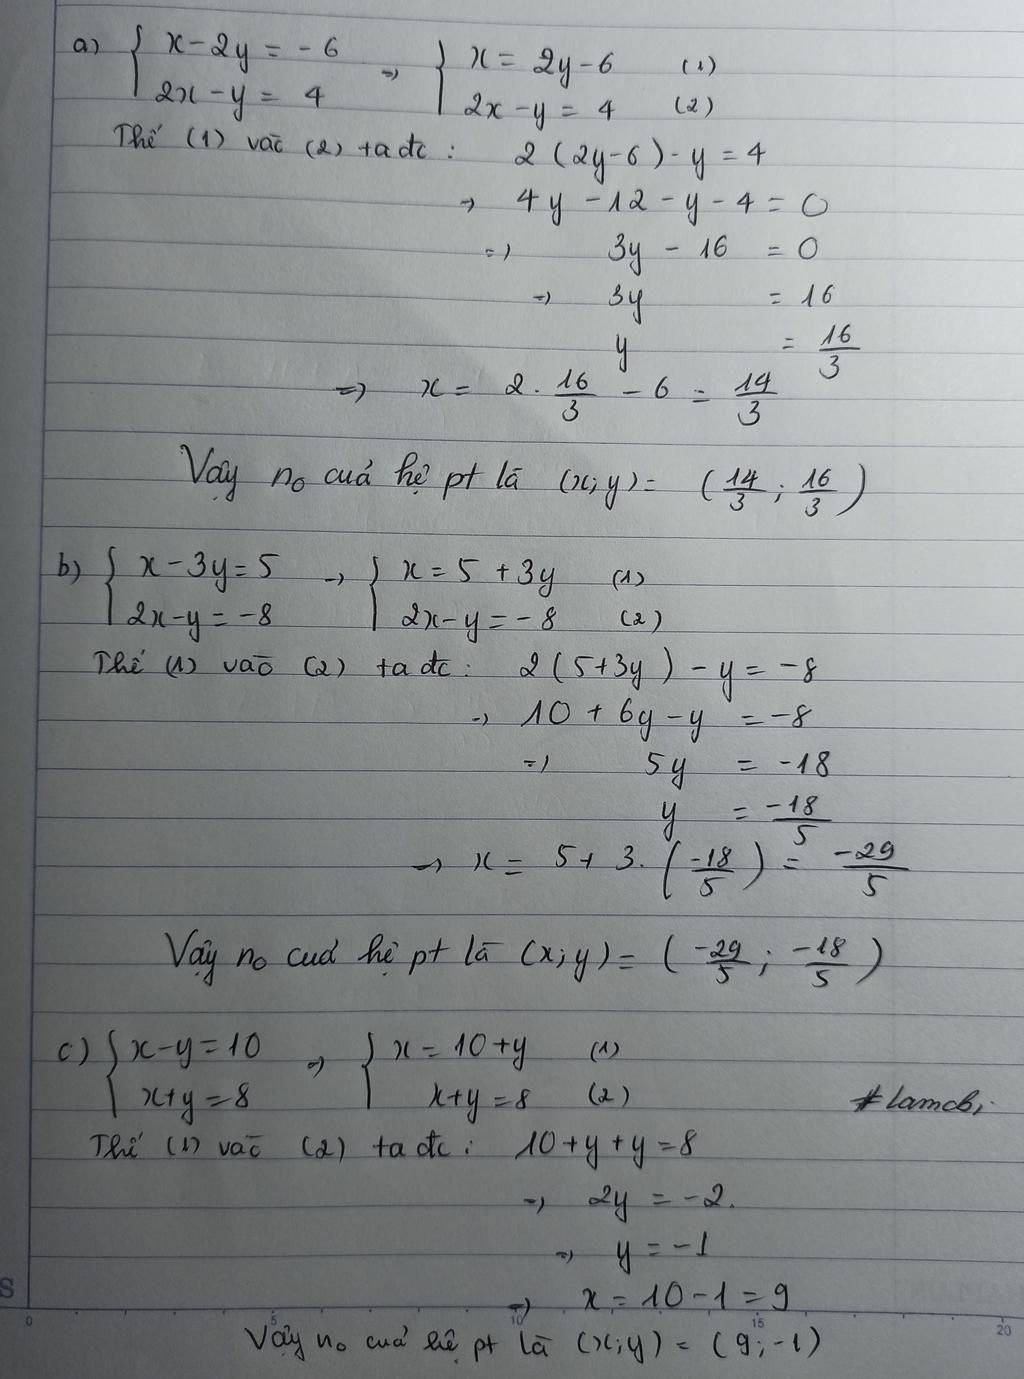 a) { x - 2y = -6 => { x = 2y - 6 (1)
2x - y = 4 2x - y = 4 (2)
Thế (1) vào (2) ta đc : 2 (2y - 6) - y = 4
=> 4y - 12 - y - 4 = 0
=> 3y - 16 = 0
=> 3y = 16
y = 16/3
=> x = 2 . 16/3 - 6 = 14/3
Vậy no của hệ pt là (x; y) = (14/3 ; 16/3)
b) { x - 3y = 5 => { x = 5 + 3y (1)
2x - y = -8 2x - y = -8 (2)
Thế (1) vào (2) ta đc : 2 (5 + 3y) - y = -8
=> 10 + 6y - y = -8
=> 5y = -18
y = -18/5
=> x = 5 + 3. (-18/5) = -29/5
Vậy no của hệ pt là (x; y) = (-29/5 ; -18/5)
c) { x - y = 10 => { x = 10 + y (1)
x + y = 8 x + y = 8 (2)
#lamchi
Thế (1) vào (2) ta đc : 10 + y + y = 8
=> 2y = -2.
=> y = -1
=> x = 10 - 1 = 9
S 0 5 10 15 20
Vậy no của hệ pt là (x; y) = (9; -1)